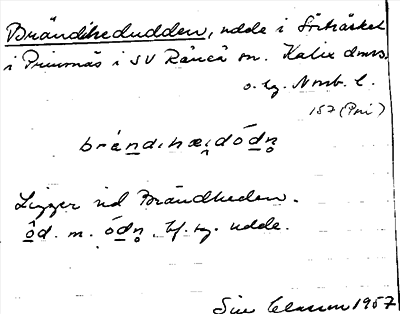 Brändhedudden, udde i Sörträsket
i Prinsnäs i SV Råneå sn. Kalix dmrs
o. lg. Norrb. l.
157 (Pri)
brándihæi̯dódn̥
Ligger vid Brändheden.
ôd. m. ódn̥ bf. sg. udde.
Siw Classon 1957